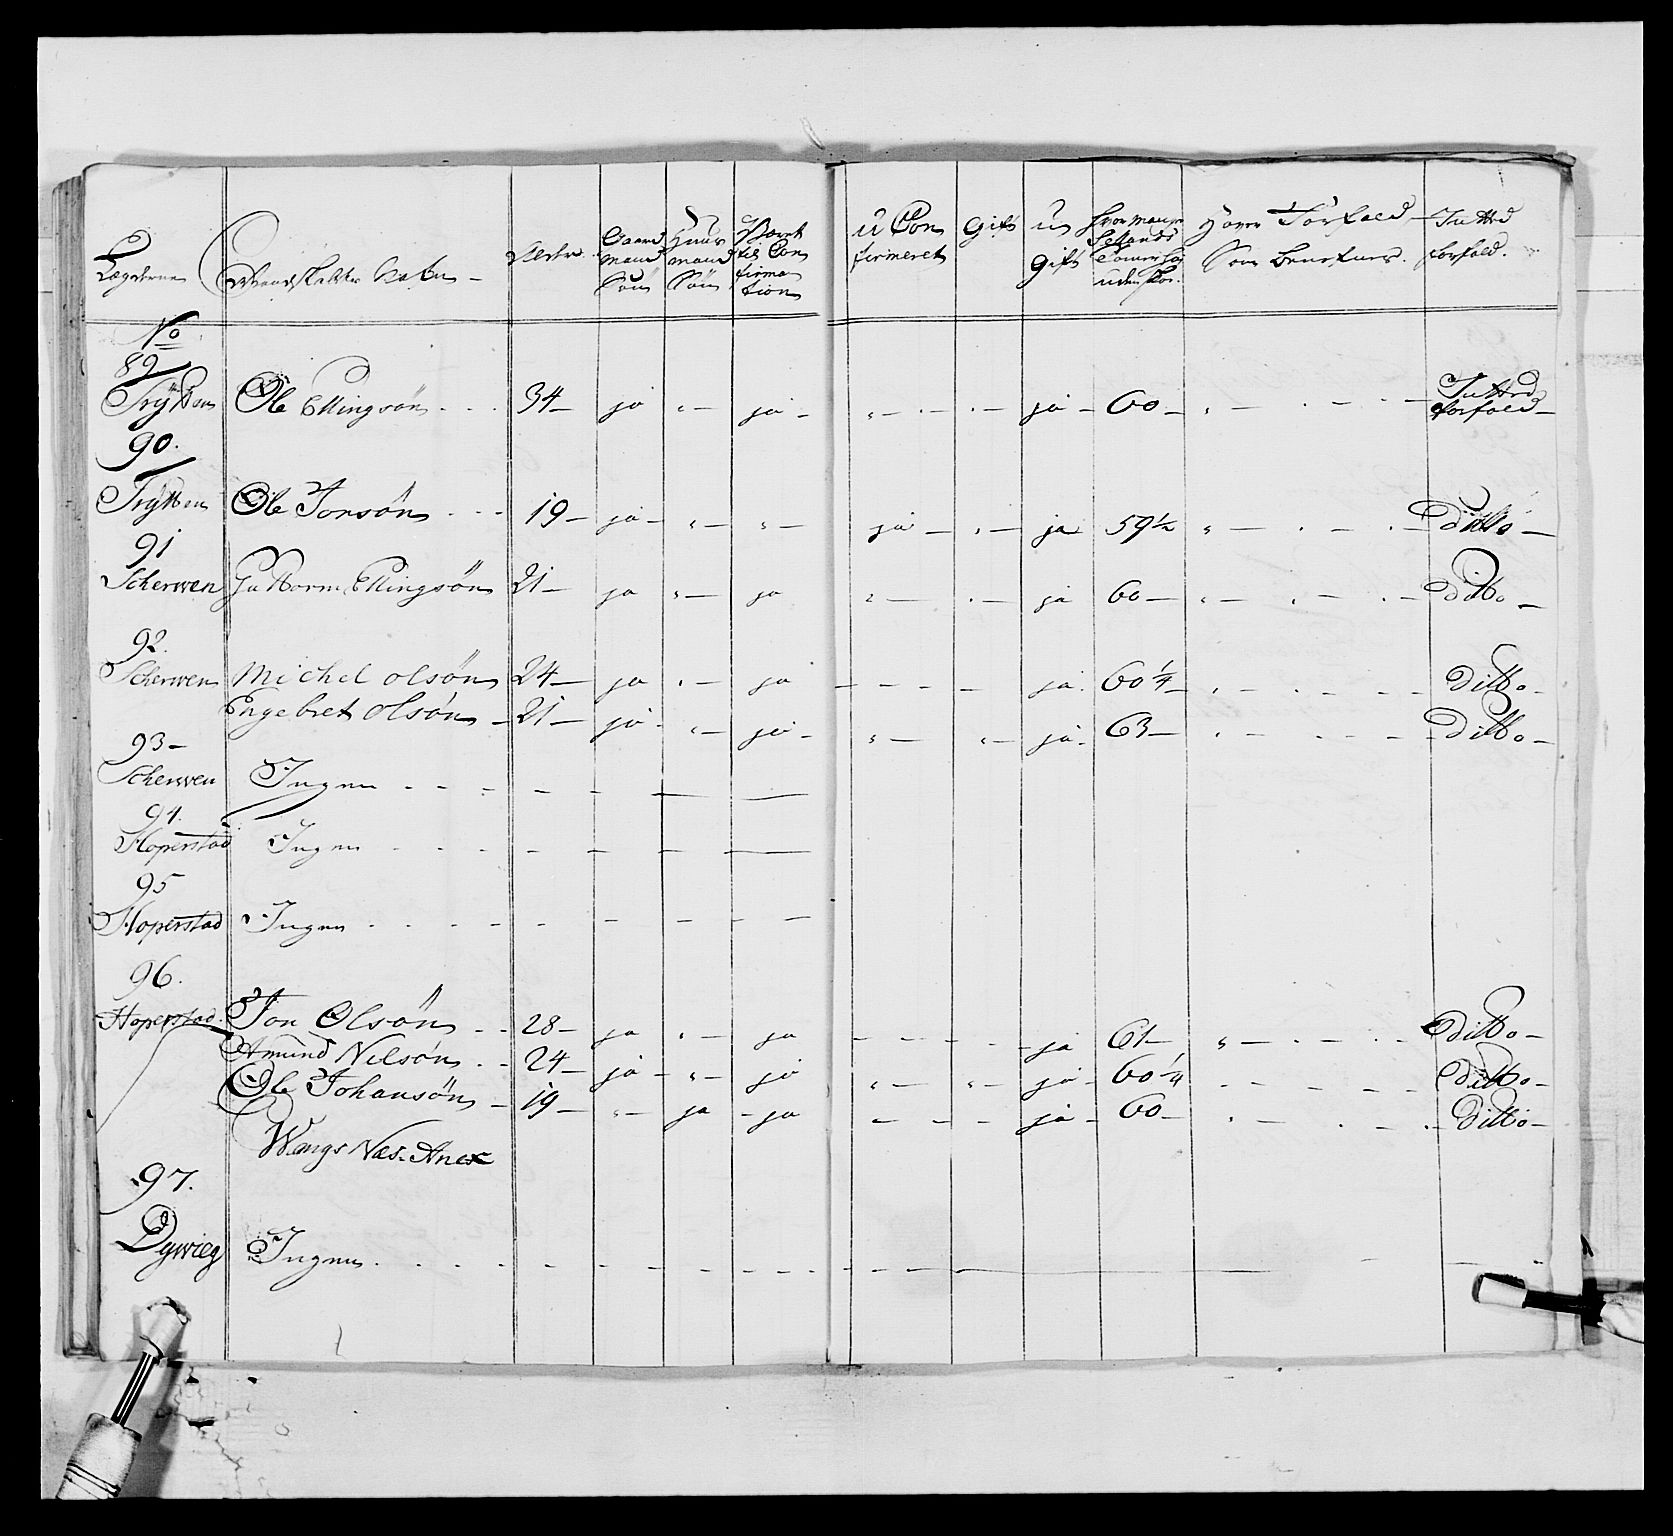 Lægdernes Mandskabets Nafn Alder Gaard mand Søn Huus mand Søn Været til Con firma tion u Con firmeret Gift u Gift hvor mange Tommer uden Skoe Hans Forfald Som benefnes. Intted forfald.
No
89
Trÿtten Ole Ellingsön 34 ja " ja " ja 60 " Intted forfald
90.
Trÿtten Ole Jonsön 19 ja " " ja " ja 59 1/2 " Ditto
91
Scherwen Guttorm Ellingsön 21 ja " ja " ja 60 " Ditto
92.
Scherwen Michel olsön 24 ja " ja ja 60 1/4 " Ditto
Engebret olsön 21 ja " ja " " ja 63 " Ditto
93
Scherwen Ingen
94.
Hoperstad Ingen
95
Hoperstad Ingen
96.
Hoperstad Jon Olsön 28 ja " ja ja 61 " Ditto
Amund Nilsön 24 ja " ja " " ja 60 1/4 Ditto
Ole Johansön 19 " ja ja ja 60 " Ditto
Wangs Næs Anex
97.
Dywieg Ingen